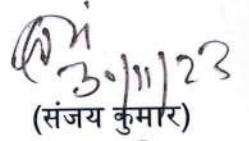 30/11/23
(संजय कुमार)